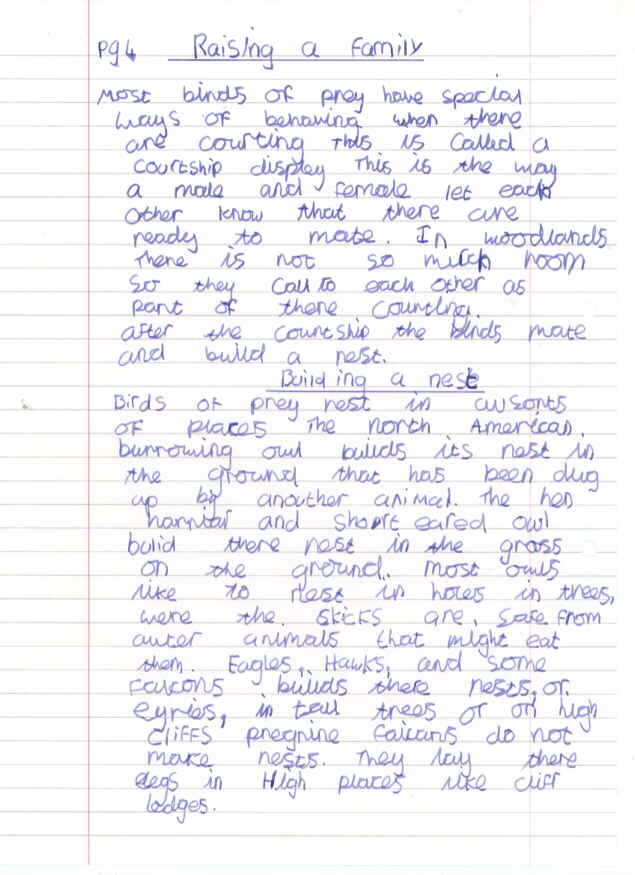 pg4 Raising a family
Most birds of prey have special
ways of behaving when there
are courting This is called a
courtship display This is the way
a male and female let each
other know that there are
ready to mate. In woodlands
There is not so much room
So they call to each other as
part of there courting.
after the courtship the birds mate
and build a nest.
Building a nest
Birds of prey nest in allsorts
of places The north American
burrowing owl builds its nest in
the ground that has been dug
up by anouther animal. The hen
harrier and short eared owl
build there nest in the grass
on the ground. most owls
like to nest in holes in trees,
were the are, safe from
auter animals that might eat
them. Eagles, Hawks, and some
falcons builds there nests, or
eyries, in tall trees or on high
cliffs peregrine falcans do not
make nests. They lay there
eegs in High places like cliff
ledges.